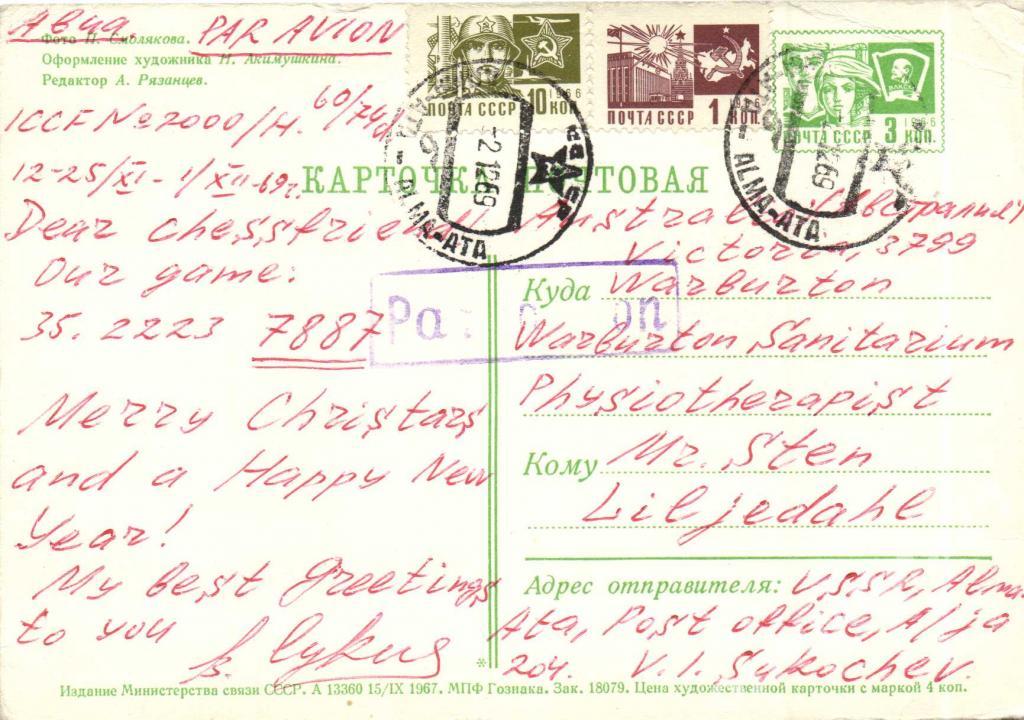 Авиа. PAR AVION
Фото П. Смолякова.
Оформление художника Н. Акимушкина.
Редактор А. Рязанцев.
ПОЧТА СССР 10 КОП. 1966
ПОЧТА СССР 1 КОП. 1966
ВЛКСМ
ПОЧТА СССР 3 КОП. 1966
-2.12.69
ALMA-ATA
12.69
ALMA-ATA
КАРТОЧКА ПОЧТОВАЯ
ICCF № 2000/H. 60/74d
12-25/XI - 1/XII-69г.
Dear chessfriend!
Our game:
35. 2223 7887
Merry Christars
and a Happy New
Year!
My best greetings
to you
Par avion
Australia (Австралия)
Victoria, 3799
Куда Warburton
Warburton Sanitarium
Physiotherapist
Кому Mr. Sten
Liljedahl
Адрес отправителя: USSR, Alma-
Ata, Post office, A/ja
204. V. I. Sukochev.
Издание Министерства связи СССР. А 13360 15/IX 1967. МПФ Гознака. Зак. 18079. Цена художественной карточки с маркой 4 коп.